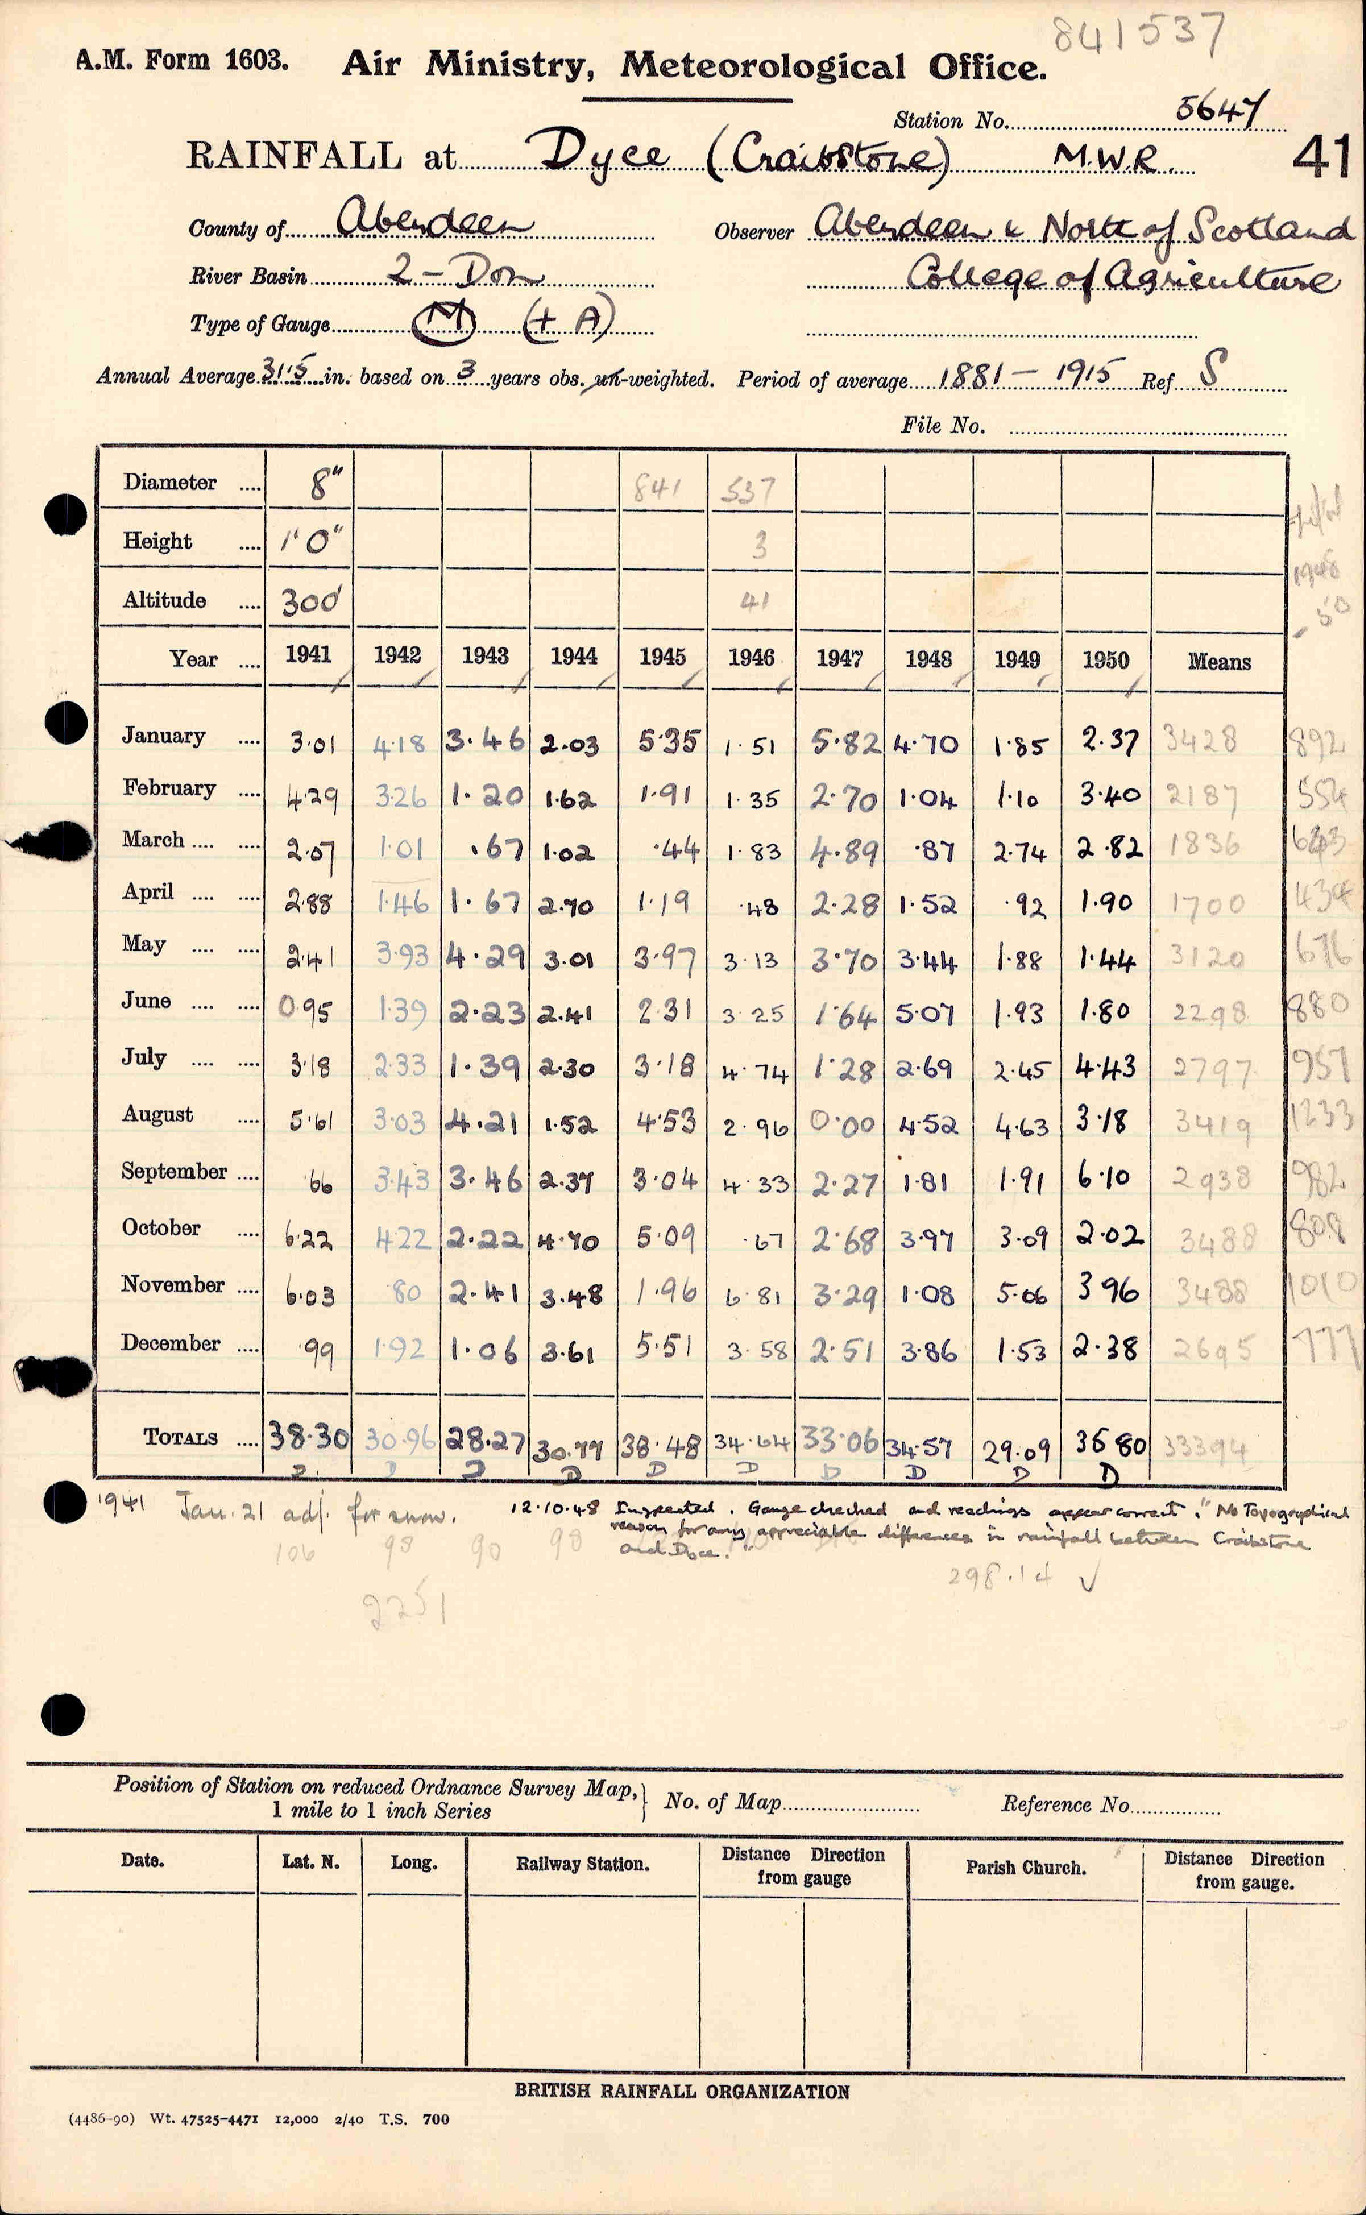 841537
A.M. Form 1603. Air Ministry, Meteorological Office.
Station No. 5647
RAINFALL at Dyce (Craibstone) M.W.R. 41
County of Aberdeen Observer Aberdeen & North of Scotland
River Basin 2 - Don College of Agriculture
Type of Gauge M (+ A)
Annual Average 31.5 in. based on 3 years obs. un-weighted. Period of average 1881 - 1915 Ref S
File No.
Diameter .... 8" 841 537
Height .... 1' 0" 3
Altitude .... 300' 41
1948
- 50
Year .... 1941 1942 1943 1944 1945 1946 1947 1948 1949 1950 Means
January .... 3.01 4.18 3.46 2.03 5.35 1.51 5.82 4.70 1.85 2.37 3428 892
February .... 4.29 3.26 1.20 1.62 1.91 1.35 2.70 1.04 1.10 3.40 2187 554
March .... .... 2.07 1.01 .67 1.02 .44 1.83 4.89 .87 2.74 2.82 1836 643
April .... .... 2.88 1.46 1.67 2.70 1.19 .48 2.28 1.52 .92 1.90 1700 434
May .... .... 2.41 3.93 4.29 3.01 3.97 3.13 3.70 3.44 1.88 1.44 3120 676
June .... .... 0.95 1.39 2.23 2.41 2.31 3.25 1.64 5.07 1.93 1.80 2298 880
July .... .... 3.18 2.33 1.39 2.30 3.18 4.74 1.28 2.69 2.45 4.43 2797 957
August .... 5.61 3.03 4.21 1.52 4.53 2.96 0.00 4.52 4.63 3.18 3419 1233
September .... .66 3.43 3.46 2.37 3.04 4.33 2.27 1.81 1.91 6.10 2938 982
October .... 6.22 4.22 2.22 4.70 5.09 .67 2.68 3.97 3.09 2.02 3488 908
November .... 6.03 .80 2.41 3.48 1.96 6.81 3.29 1.08 5.06 3.96 3488 1010
December .... .99 1.92 1.06 3.61 5.51 3.58 2.51 3.86 1.53 2.38 2695 777
TOTALS .... 38.30 30.96 28.27 30.77 38.48 34.64 33.06 34.57 29.09 35.80 33394
D D D D D D D D D D
1941 Jan. 21 adj. for snow. 12.10.48 Inspected. Gauge checked and readings appear correct. "No Topographical
reason for any appreciable differences in rainfall between Craibstone
and Dyce."
106 98 90 98
298.14 ✓
2251
Position of Station on reduced Ordnance Survey Map, } No. of Map Reference No.
1 mile to 1 inch Series
Date. Lat. N. Long. Railway Station. Distance Direction from gauge Parish Church. Distance Direction from gauge.
BRITISH RAINFALL ORGANIZATION
(4486-90) Wt. 47525-4471 12,000 2/40 T.S. 700